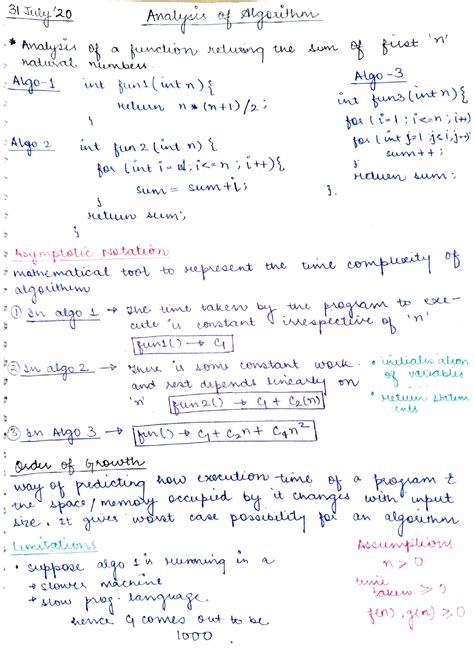 31 July '20
Analysis of Algorithm
* Analysis of a function retuning the sum of first 'n'
natural numbers.
Algo-1 int fun1 (int n) {
return n * (n+1) /2 ;
}
Algo 2 int fun2 (int n) {
for (int i = ; i<=n ; i++) {
sum = sum+i;
}
return sum;
}
Algo-3
int fun3 (int n) {
for ( i=1 ; i<=n ; i++)
for ( int j=1 j≤i, j++)
sum++ ;
return sum ;
}.
Asymptotic Notation
mathematical tool to represent the time complexity of
algorithm
① In algo 1 → The time taken by the program to exe-
cute is constant irrespective of 'n'
fun1() → C1
② In algo 2 → There is some constant work.
and rest depends linearly on
'n' fun2() → C1 + C2(n)
• initialisation
of variables
• return statem
ents
③ In Algo 3 → fun() → C1 + C2n + C4n²
Order of Growth
way of predicting how execution time of a program &
the space/memory occupied by it changes with input
size. It gives worst case possibility for an algorithm
Limitations
• suppose algo 1 is running in a
→ slower machine
→ slow prog. language.
hence C1 comes out to be
1000
Assumptions
n ≥ 0
time
taken ≥ 0
f(n), g(n) ≥ 0